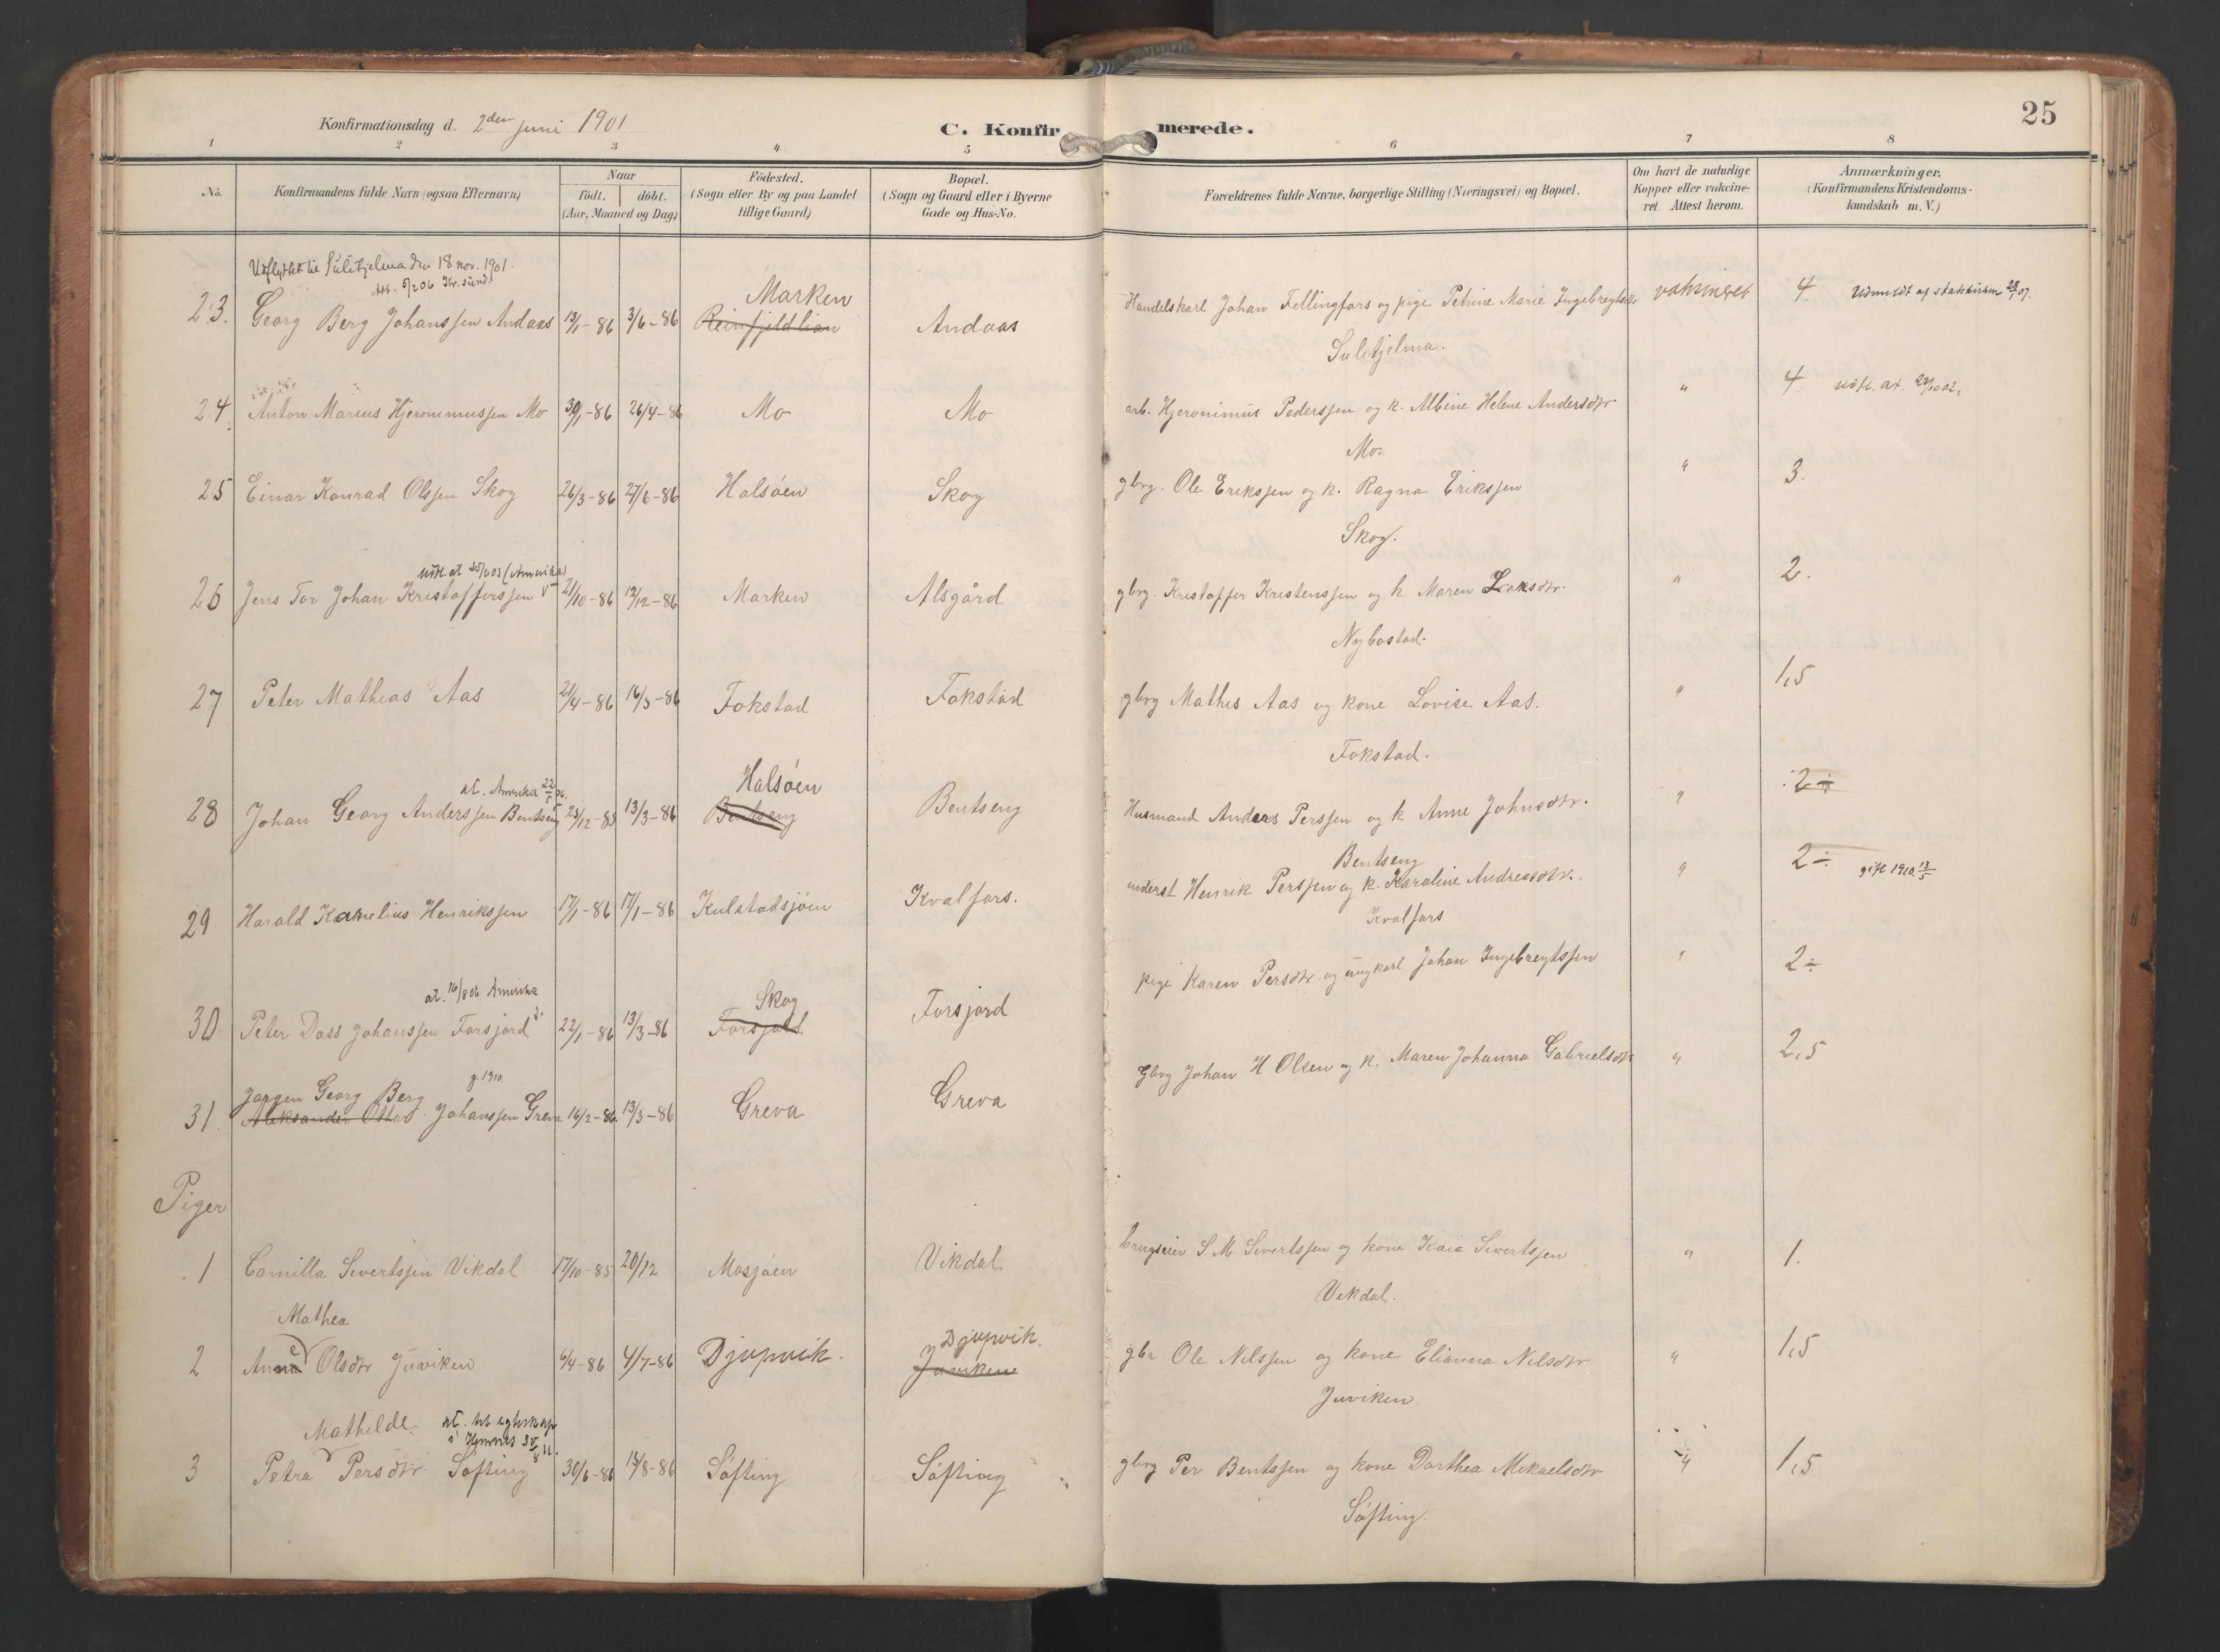 25
Konfirmationsdag d. 2den juni 1901
C. Konfirmerede.
1 2 3 4 5 6 7 8
No. Konfirmandens fulde Navn (ogsaa Efternavn) Naar födt, döbt. (Aar, Maaned og Dag) Födested. (Sogn eller By og paa Landet tillige Gaard) Bopæl. (Sogn og Gaard eller i Byerne Gade og Hus-No. Forældrenes fulde Navne, borgerlige Stilling (Næringsvei) og Bopæl. Om havt de naturlige Kopper eller vakcineret. Attest herom. Anmærkninger, (Konfirmandens Kristendomskundskab m. V.)
Udflyttet til Sulitjelma den 18 nov. 1901.
Kr.sund
23. Georg Berg Johanssen Andaas 13/1-86 3/6-86 Marken Reinfjeldlian Andaas Handelskarl Johan Fellingfors og pige Petrine Marie Ingebregtsdtr vaksineret 4. Udmeldt af statskirken 07.
Sulitjelma.
24. Anton Marius Hjeronimussen Mo 30/1-86 26/4-86 Mo Mo arb. Hjeronimus Pederssen og k. Albine Helene Andersdtr. " 4. udfl. at. 02.
Mo.
25 Einar Konrad Olssen Skog 26/3-86 27/6-86 Halsøen Skog gbrg. Ole Erikssen og k. Ragna Erikssen " 3.
Skog.
udfl. at 03 (Amerika)
26 Jens Tor Johan Kristofferssen 21/10-86 12/12-86 Marken Alsgård gbrg. Kristoffer Kristenssen og k Maren " 2.
Nybostad.
27 Peter Mathias Aas 21/4-86 16/5-86 Fokstad Fokstad gbrg Mathis Aas og kone Lovise Aas. " 1,5
Fokstad.
at. Amerika 22/5 06.
28 Johan Georg Anderssen Bentseng 25/12-85 13/3-86 Halsøen Bentseng Bentseng Husmand Anders Perssen og k Anne Johnsdtr. " 2 ÷
Bentseng
29 Harald Kornelius Henrikssen 17/1-86 17/1-86 Kulstadsjøen Kvalfors. inderst Henrik Perssen og k. Karoline Andreasdtr. " 2 ÷ gift 1910 13/5
Kvalfors
at. 16/8 06 Amerika
30 Peter Dass Johanssen Forsjord 22/1-86 13/3-86 Skog Forsjord Forsjord pige Karen Persdtr og ungkarl Johan Ingebregtssen " 2÷
g. 1910
Jørgen Georg Berg
31. Aleksander Ottar Johanssen Greva 16/2-86 13/3-86 Greva Greva Gbrg Johan H Olsen og k. Maren Johanna Gabrielsdtr " 2,5
Piger
1 Camilla Severtssen Vikdal 17/10-85 20/12 Mosjøen Vikdal brugseier S. M. Severtssen og kone Kaia Sivertssen " 1.
Vikdal.
Mathea
2 Anne Olsdtr Juviken 6/4-86 4/7-86 Djupvik. Djupvik. Juviken gbr Ole Nilssen og kone Elianna Nilsdtr " 1,5
Juviken.
Mathilde at. til egteskap i Hemnes
3 Petra Persdtr Søfting 30/6-86 15/8-86 Søfting Søfting gbrg Per Bentssen og kone Dorthea Mikaelsdtr " 1,5
Søfting.